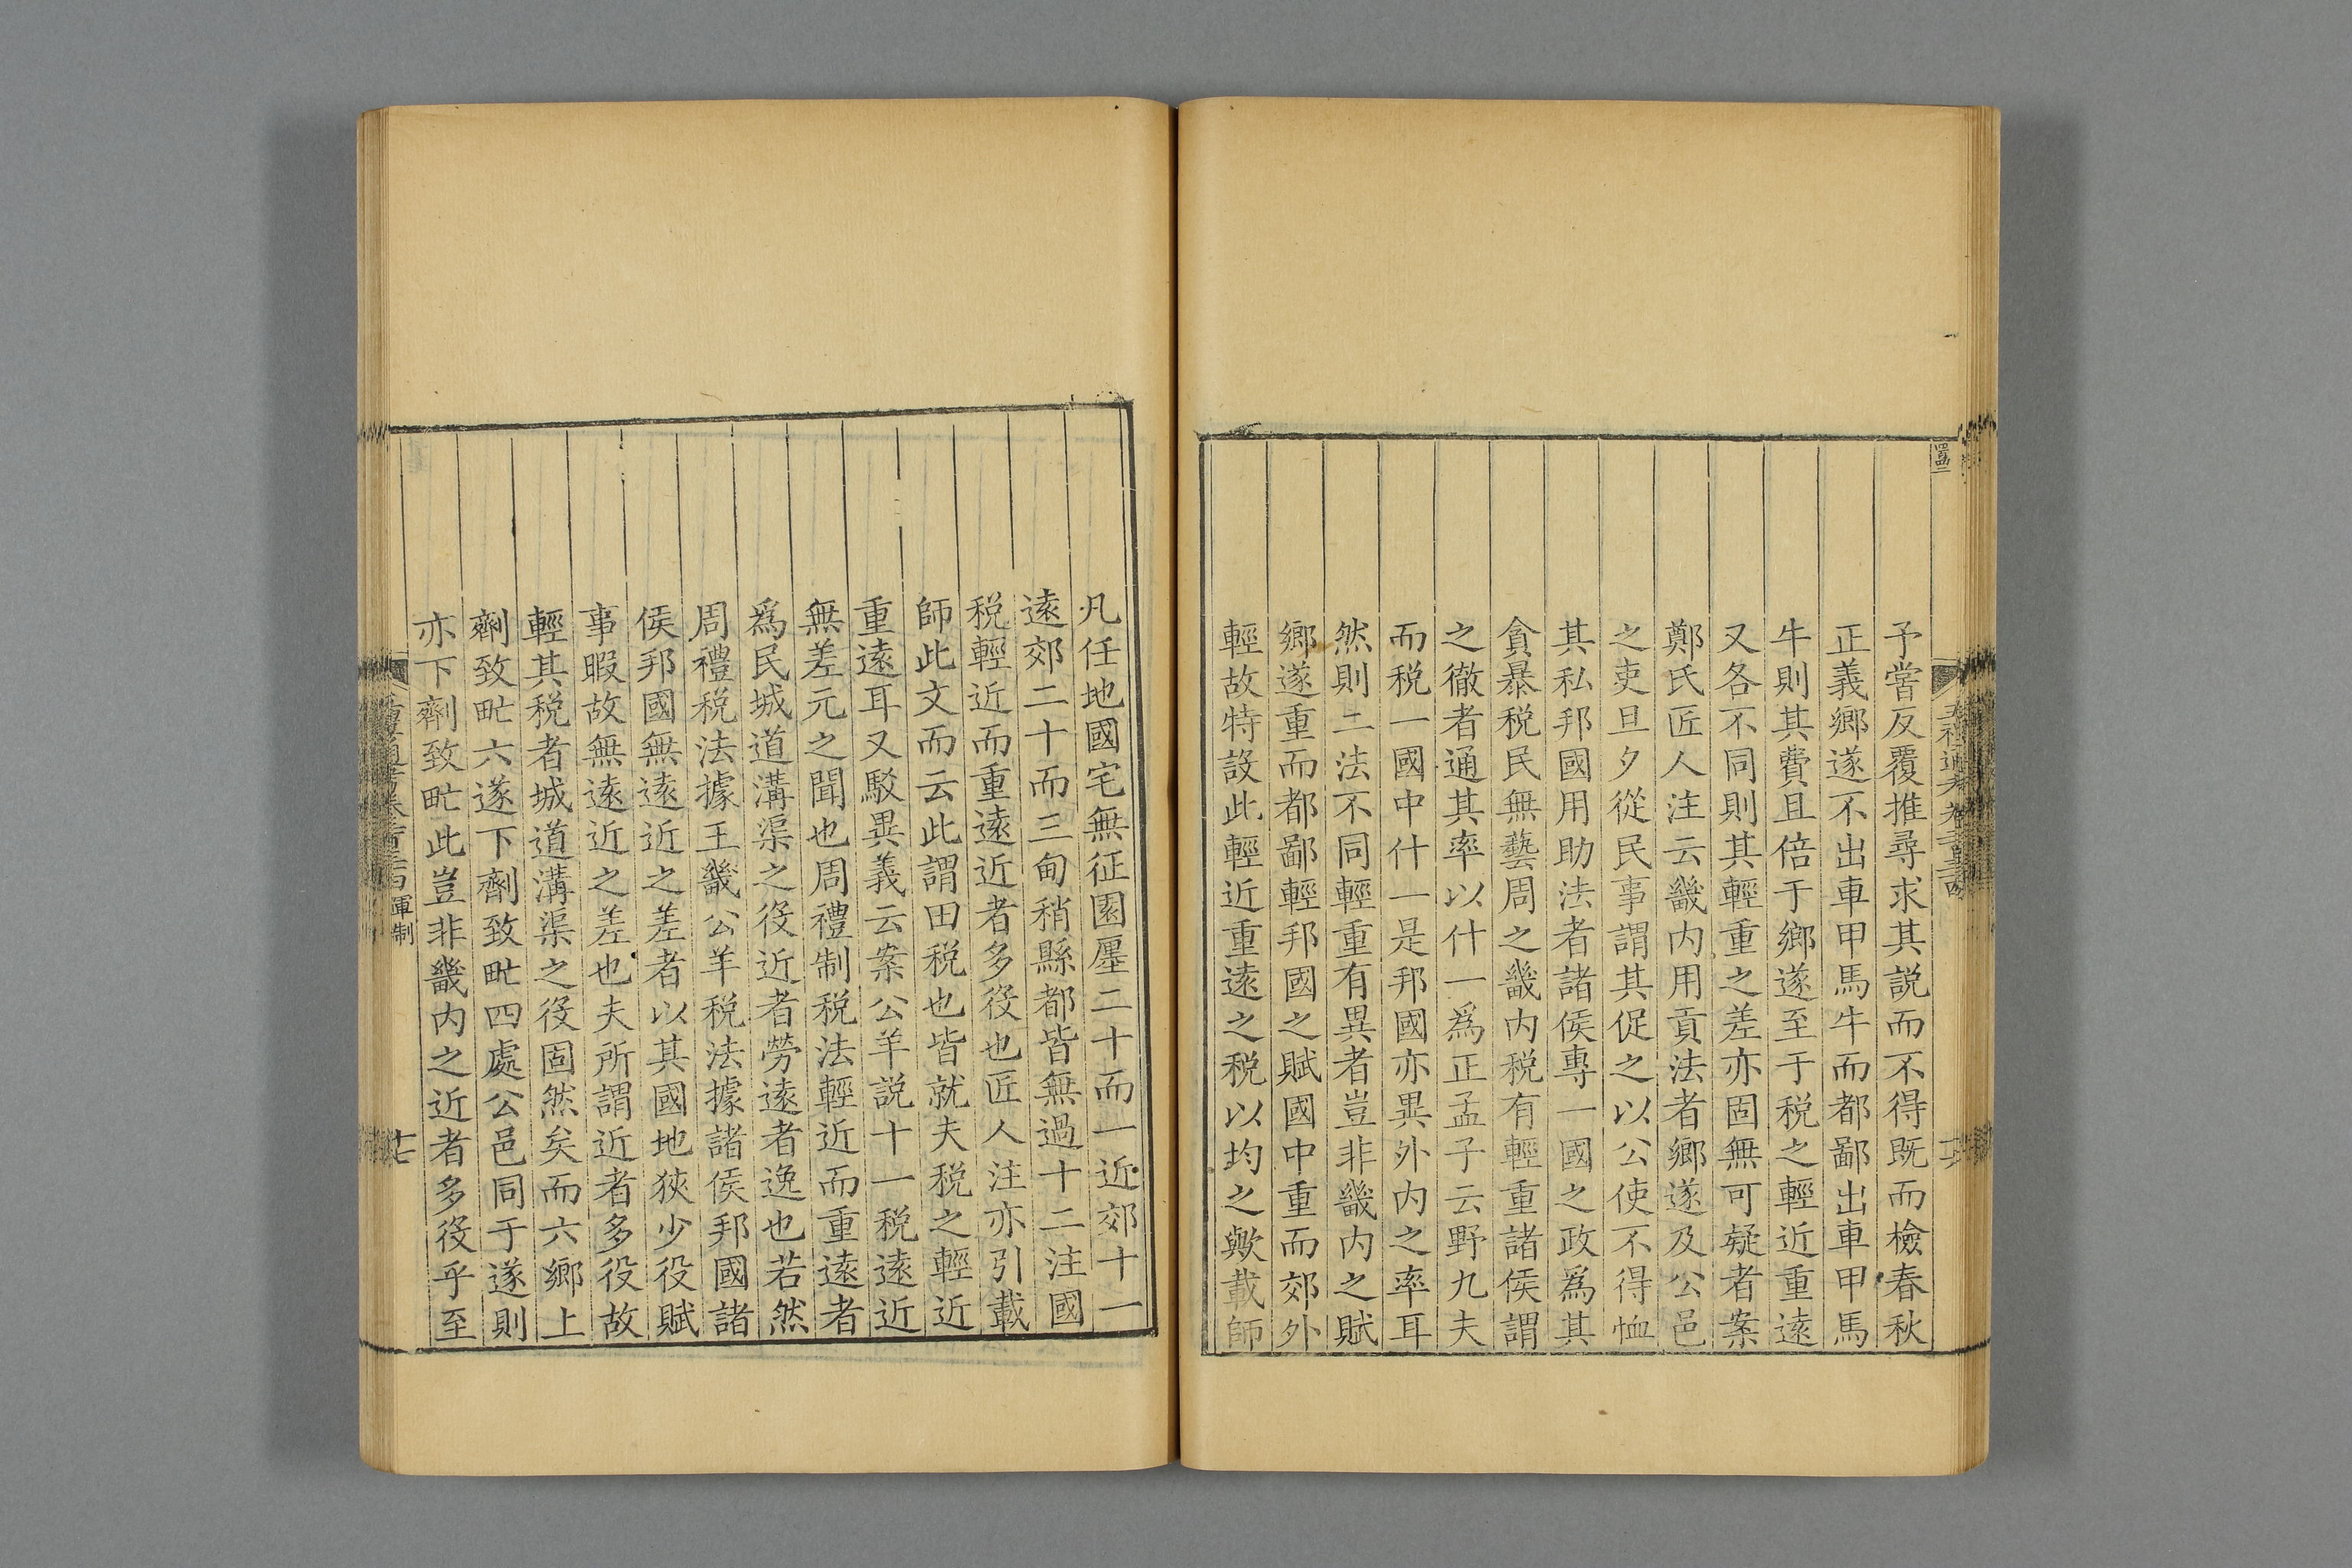 予嘗反覆推尋求其説而不得既而檢春秋
正義鄉遂不出車甲馬牛而都鄙出車甲馬
牛則其費且倍于鄉遂至于税之輕近重遠
又各不同則其輕重之差亦固無可疑者案
鄭氏匠人注云畿内用貢法者鄉遂及公邑
之吏旦夕從民事謂其促之以公使不得恤
其私邦國用助法者諸侯專一國之政爲其
貪暴税民無藝周之畿内税有輕重諸侯謂
之徹者通其率以什一爲正孟子云野九夫
而税一國中什一是邦國亦異外内之率耳
然則二法不同輕重有異者豈非畿内之賦
鄉遂重而都鄙輕邦國之賦國中重而郊外
輕故特設此輕近重遠之税以均之歟載師
凡任地國宅無征園廛二十而一近郊十一
遠郊二十而三甸稍縣都皆無過十二注國
税輕近而重遠近者多役也匠人注亦引載
師此文而云此謂田税也皆就夫税之輕近
重遠耳又駁異義云案公羊説十一税遠近
無差元之聞也周禮制税法輕近而重遠者
爲民城道溝渠之役近者勞遠者逸也若然
周禮税法據王畿公羊税法據諸侯邦國諸
侯邦國無遠近之差者以其國地狹少役賦
事暇故無遠近之差也夫所謂近者多役故
輕其税者城道溝渠之役固然矣而六鄉上
劑致甿六遂下劑致甿四處公邑同于遂則
亦下劑致甿此豈非畿内之近者多役乎至
軍制